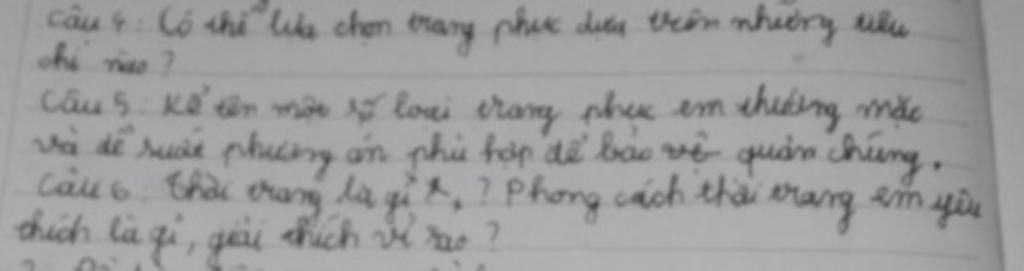 Câu 4: Có thể lựa chọn trang phục dựa trên những tiêu
chí nào?
Câu 5: Kể tên một số loại trang phục em thường mặc
và đề xuất phương án phù hợp để bảo vệ quản chúng.
Câu 6: Thời trang là gì? Phong cách thời trang em yêu
thích là gì, giải thích vì sao?